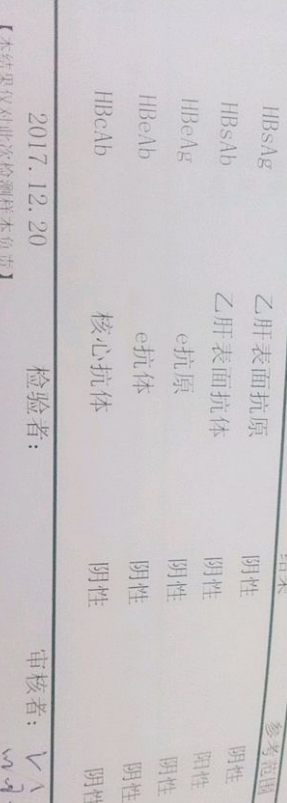 结果 参考范围
HBsAg 乙肝表面抗原 阴性 阴性
HBsAb 乙肝表面抗体 阴性 阳性
HBeAg e抗原 阴性 阴性
HBeAb e抗体 阴性 阴性
HBcAb 核心抗体 阴性 阴性
2017.12.20 检验者: 审核者:
【本结果仅对此次检测样本负责】